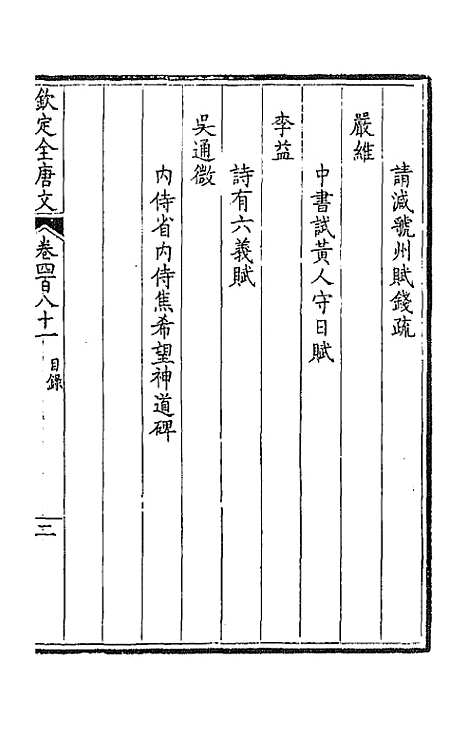 請減虢州賦錢疏
嚴維
中書試黃人守日賦
李益
詩有六義賦
吳通微
內侍省內侍焦希望神道碑
欽定全唐文
卷四百八十一
目錄
二